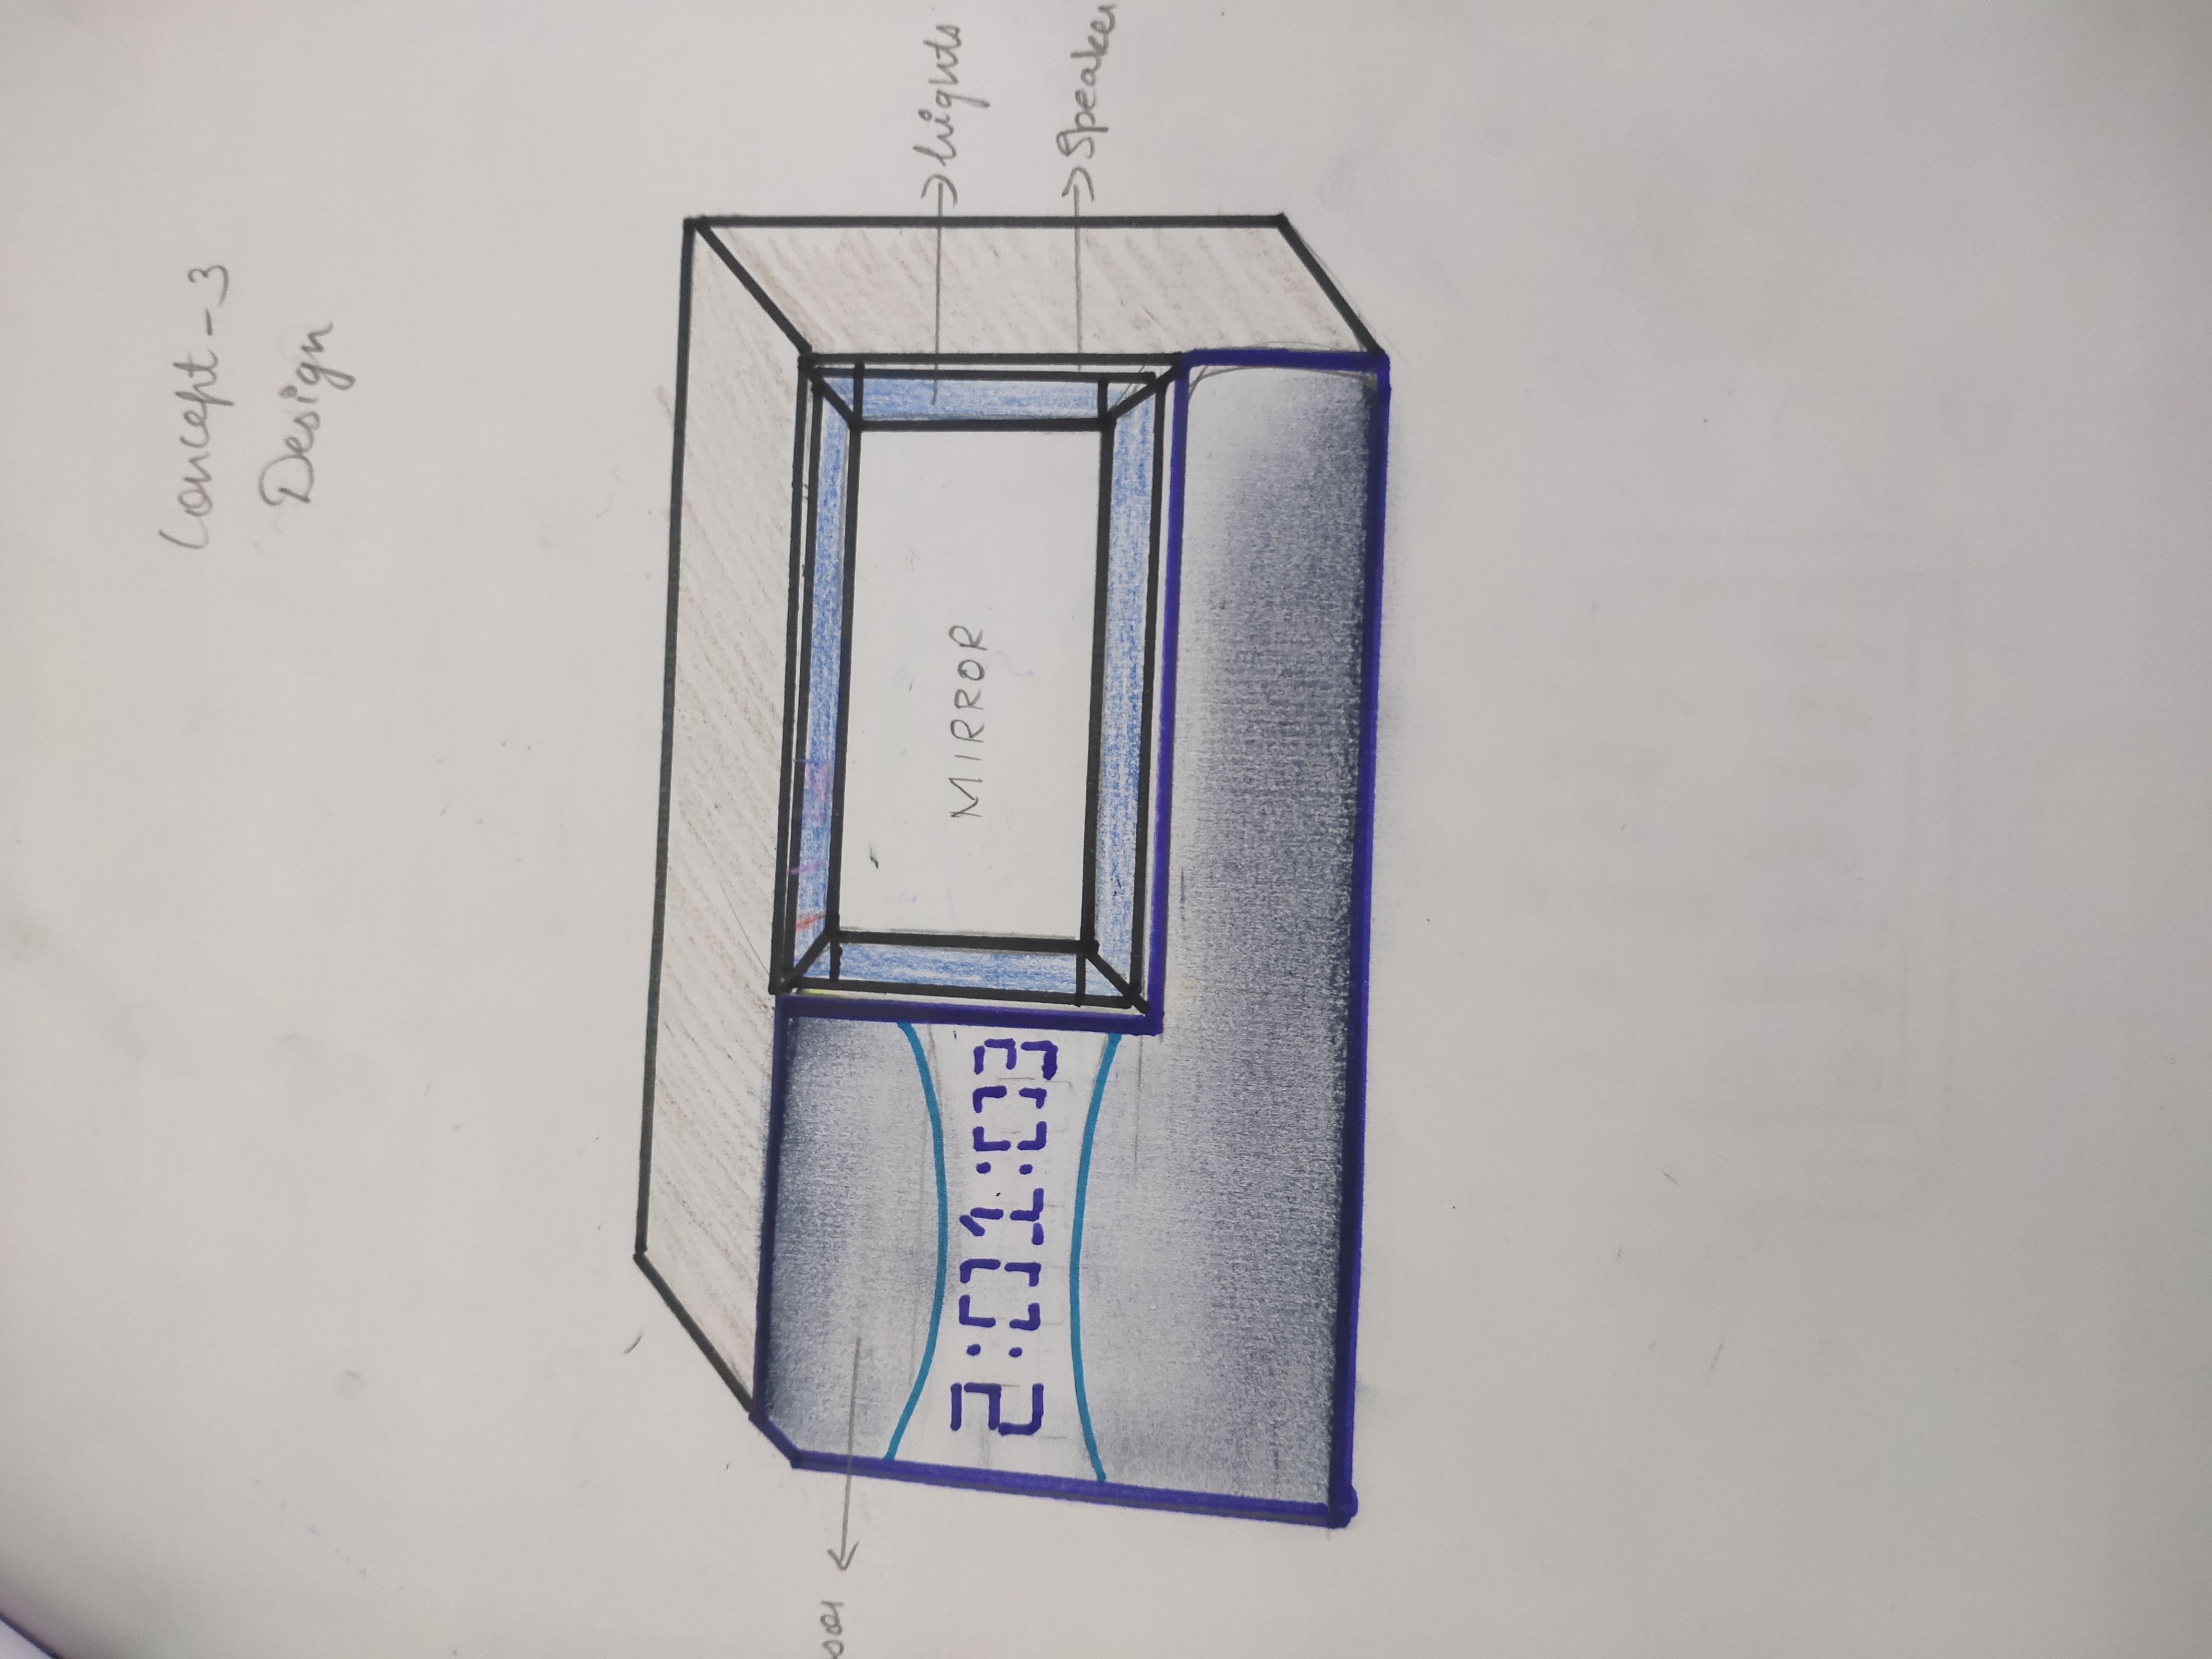 Concept - 3
Design
2:01:03
MIRROR
Lights
Speaker